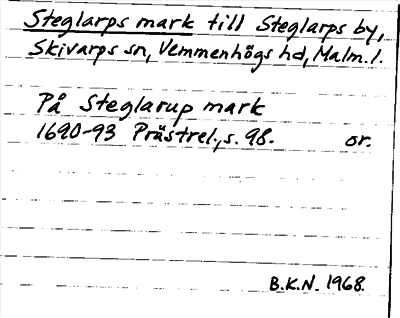 Steglarps mark till Steglarps by,
Skivarps sn, Vemmenhögs hd, Malm. l.
På Steglarup mark
1690-93 Prästrel., s. 98. or.
B.K.N. 1968.